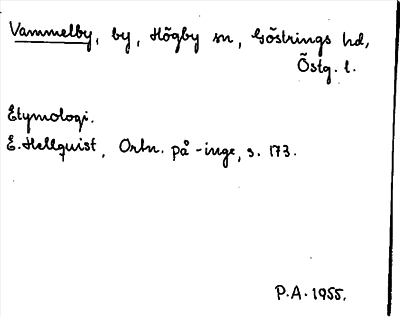 Vammelby, by, Högby sn, Göstrings hd,
Östg. l.
Etymologi.
E. Hellquist, Ortn. på -inge, s. 173.
P.A. 1955.